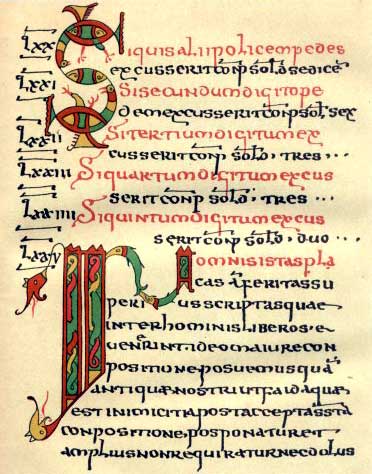 LXX Siquisaliipolicempedes
excusserit conp sol sedice
LXXI Sisecundumdigitope
deexcusserit conp sol sex
LXXII Sitertiumdigitumex
cusserit conp sol tres ···
LXXIII Siquartumdigitumexcus
serit conp sol tres ···
LXXIIII Siquintumdigitumexcus
serit conp sol duo ···
LXXV Inomnisistaspla
cas a feritassu
periusscriptasquae
interhominisliberose
venerintideomaiorecon
positioneposuemusqua
antiquaenostriutfaidaquae
estinimicitiapostacceptassta
conpositione,posponaturet
ampliusnonrequiraturnecdolus